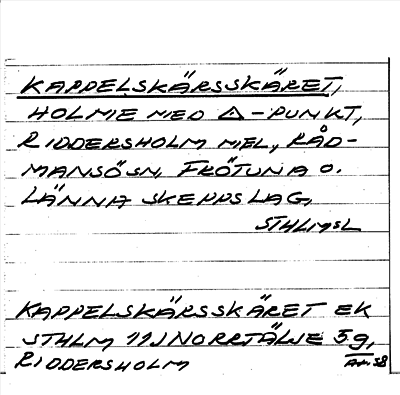 KAPPELSKÄRSSKÄRET,
HOLME MED △-PUNKT,
RIDDERSHOLM MEL, RÅD-
MANSÖ SN, FRÖTUNA O.
LÄNNA SKEPPSLAG,
STHLMSL
KAPPELSKÄRSSKÄRET EK
STHLM 11J NORRTÄLJE 5g,
RIDDERSHOLM